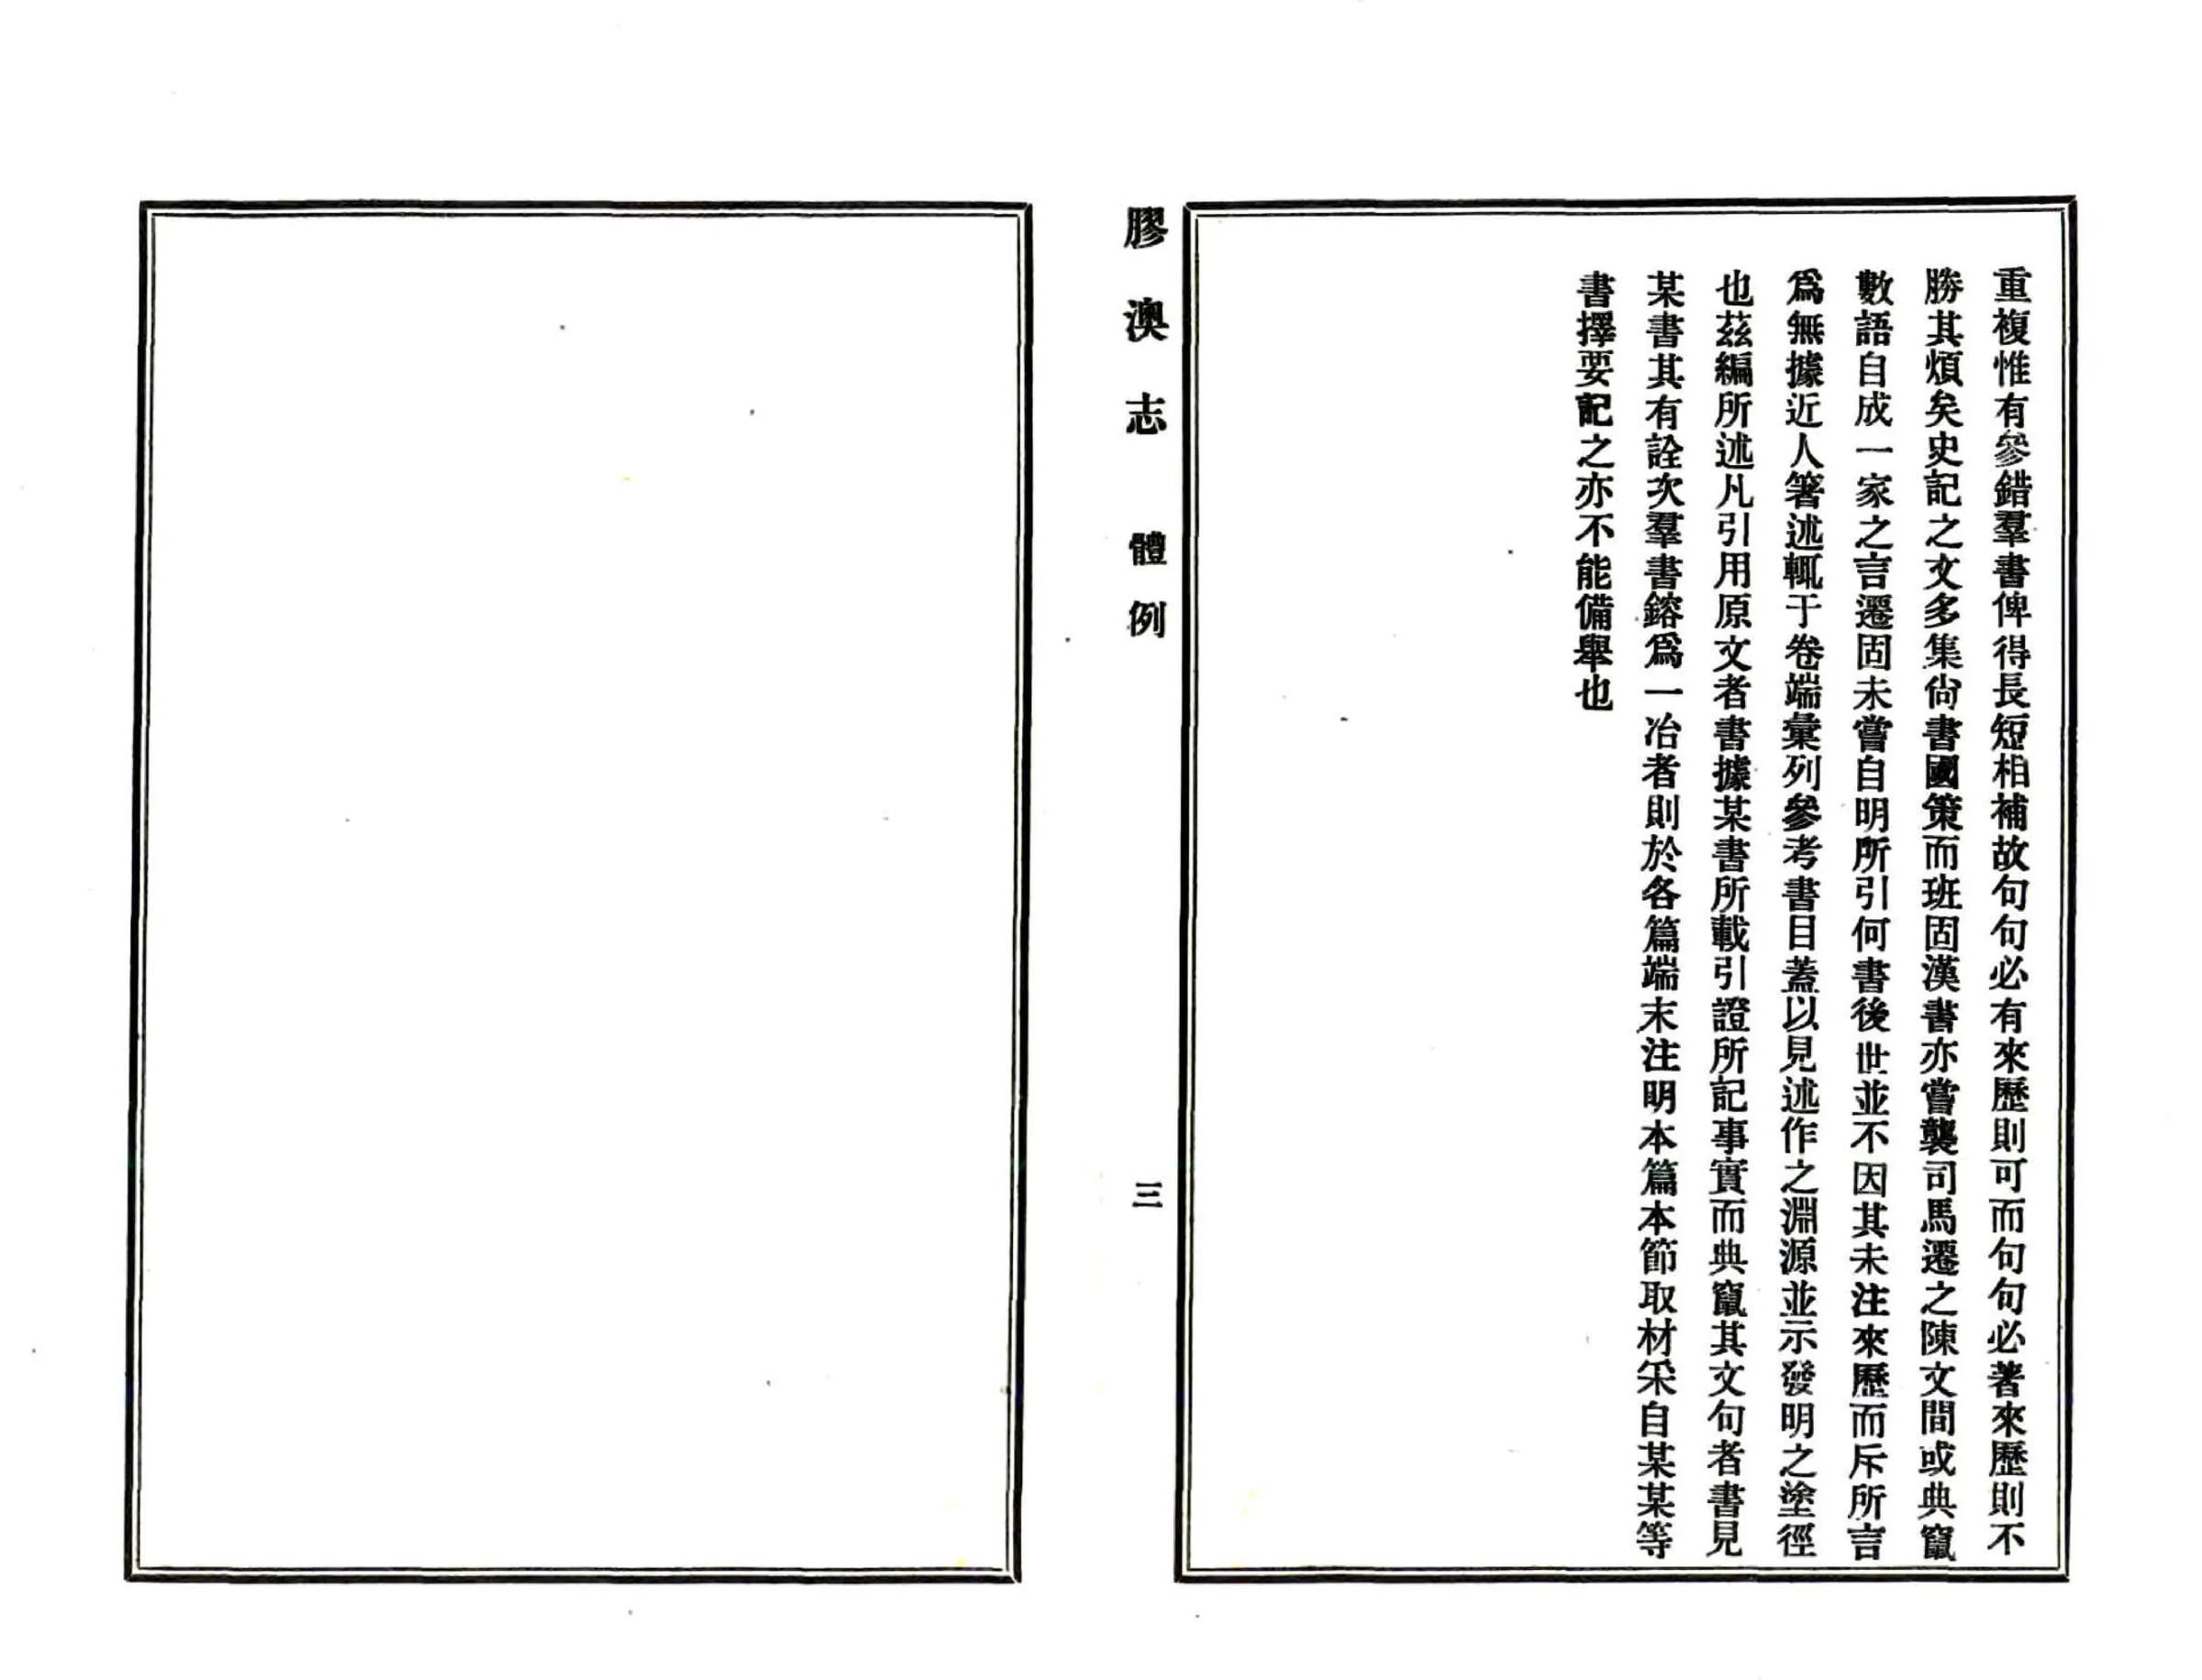 重複惟有參錯羣書俾得長短相補故句句必有來歷則可而句句必著來歷則不
勝其煩矣史記之文多集尙書國策而班固漢書亦嘗襲司馬遷之陳文間或典竄
數語自成一家之言遷固未嘗自明所引何書後世並不因其未注來歷而斥所言
爲無據近人箸述輒于卷端彙列參考書目蓋以見述作之淵源並示發明之塗徑
也茲編所述凡引用原文者書據某書所載引證所記事實而典竄其文句者書見
某書其有詮次羣書鎔爲一冶者則於各篇端末注明本篇本節取材采自某某等
書擇要記之亦不能備舉也
膠澳志 體例 三